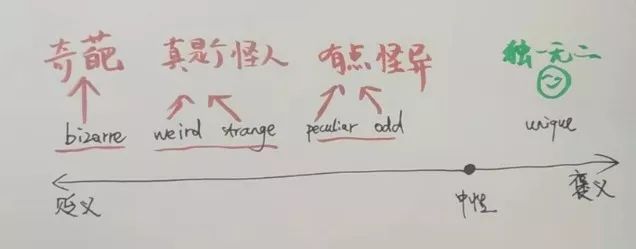 奇葩 真是个怪人 有点怪异 独一无二
bizarre weird strange peculiar odd unique
贬义 中性 褒义